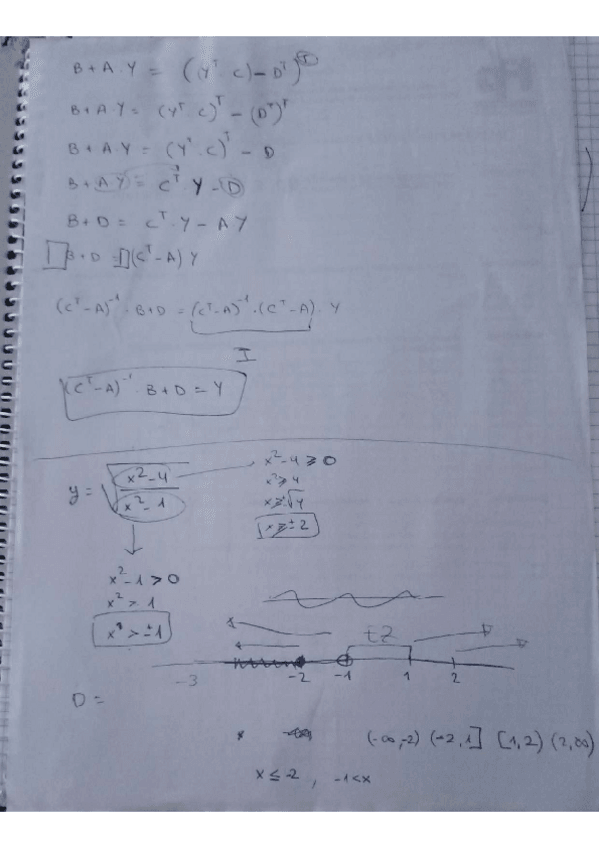 B + A · Y = ((Y^T · C) - D^T)^T
B + A · Y = (Y^T · C)^T - (D^T)^T
B + A · Y = (Y^T · C)^T - D
B + A Y = C^T · Y - D
B + D = C^T · Y - A Y
B + D = (C^T - A) Y
(C^T - A)^-1 · B + D = (C^T - A)^-1 · (C^T - A) · Y
I
(C^T - A)^-1 · B + D = Y
y = √((x^2 - 4)/(x^2 - 1))
x^2 - 4 ≥ 0
x^2 ≥ 4
x ≥ √4
x ≥ ± 2
x^2 - 1 > 0
x^2 > 1
x > ± 1
-3 -2 -1 1 2
D =
(-∞, -2) (-2, 1] [1, 2) (2, ∞)
x ≤ -2 , -1 < x